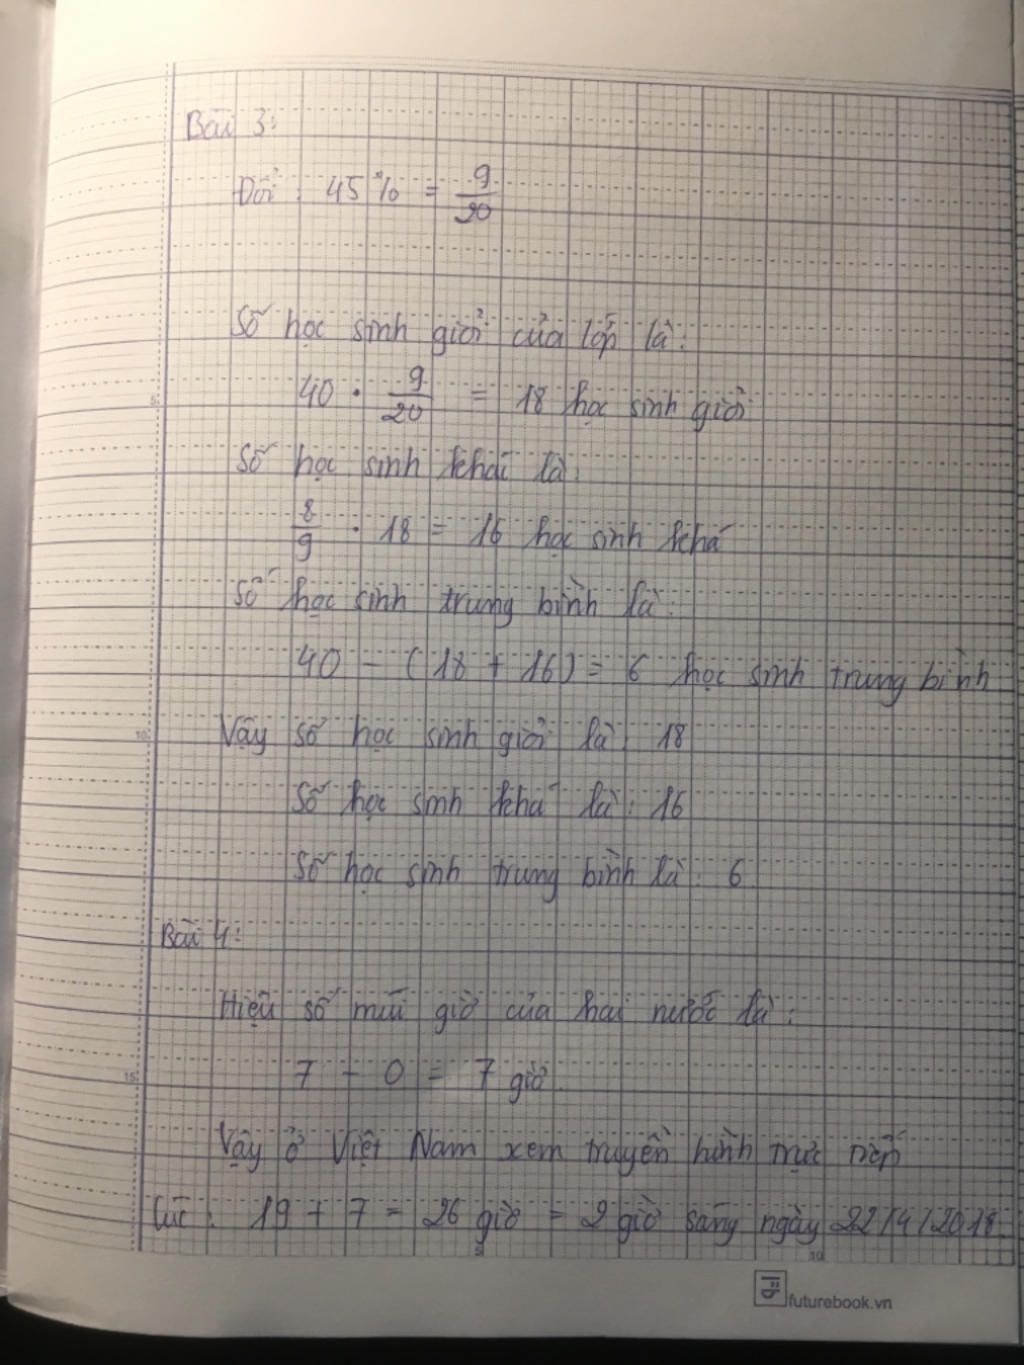 Bài 3:
Đổi: 45% = 9/20
Số học sinh giỏi của lớp là:
40 . 9/20 = 18 học sinh giỏi
Số học sinh khái là:
8/9 . 18 = 16 học sinh khá
Số học sinh trung bình là:
40 - (18 + 16) = 6 học sinh trung bình
Vậy số học sinh giỏi là: 18
Số học sinh khá là: 16
Số học sinh trung bình là: 6
Bài 4:
Hiệu số múi giờ của hai nước là:
7 - 0 = 7 giờ
Vậy ở Việt Nam xem truyền hình trực tiếp
lúc: 19 + 7 = 26 giờ = 2 giờ sáng ngày 22/4/2018.
5
10
15
5
10
futurebook.vn